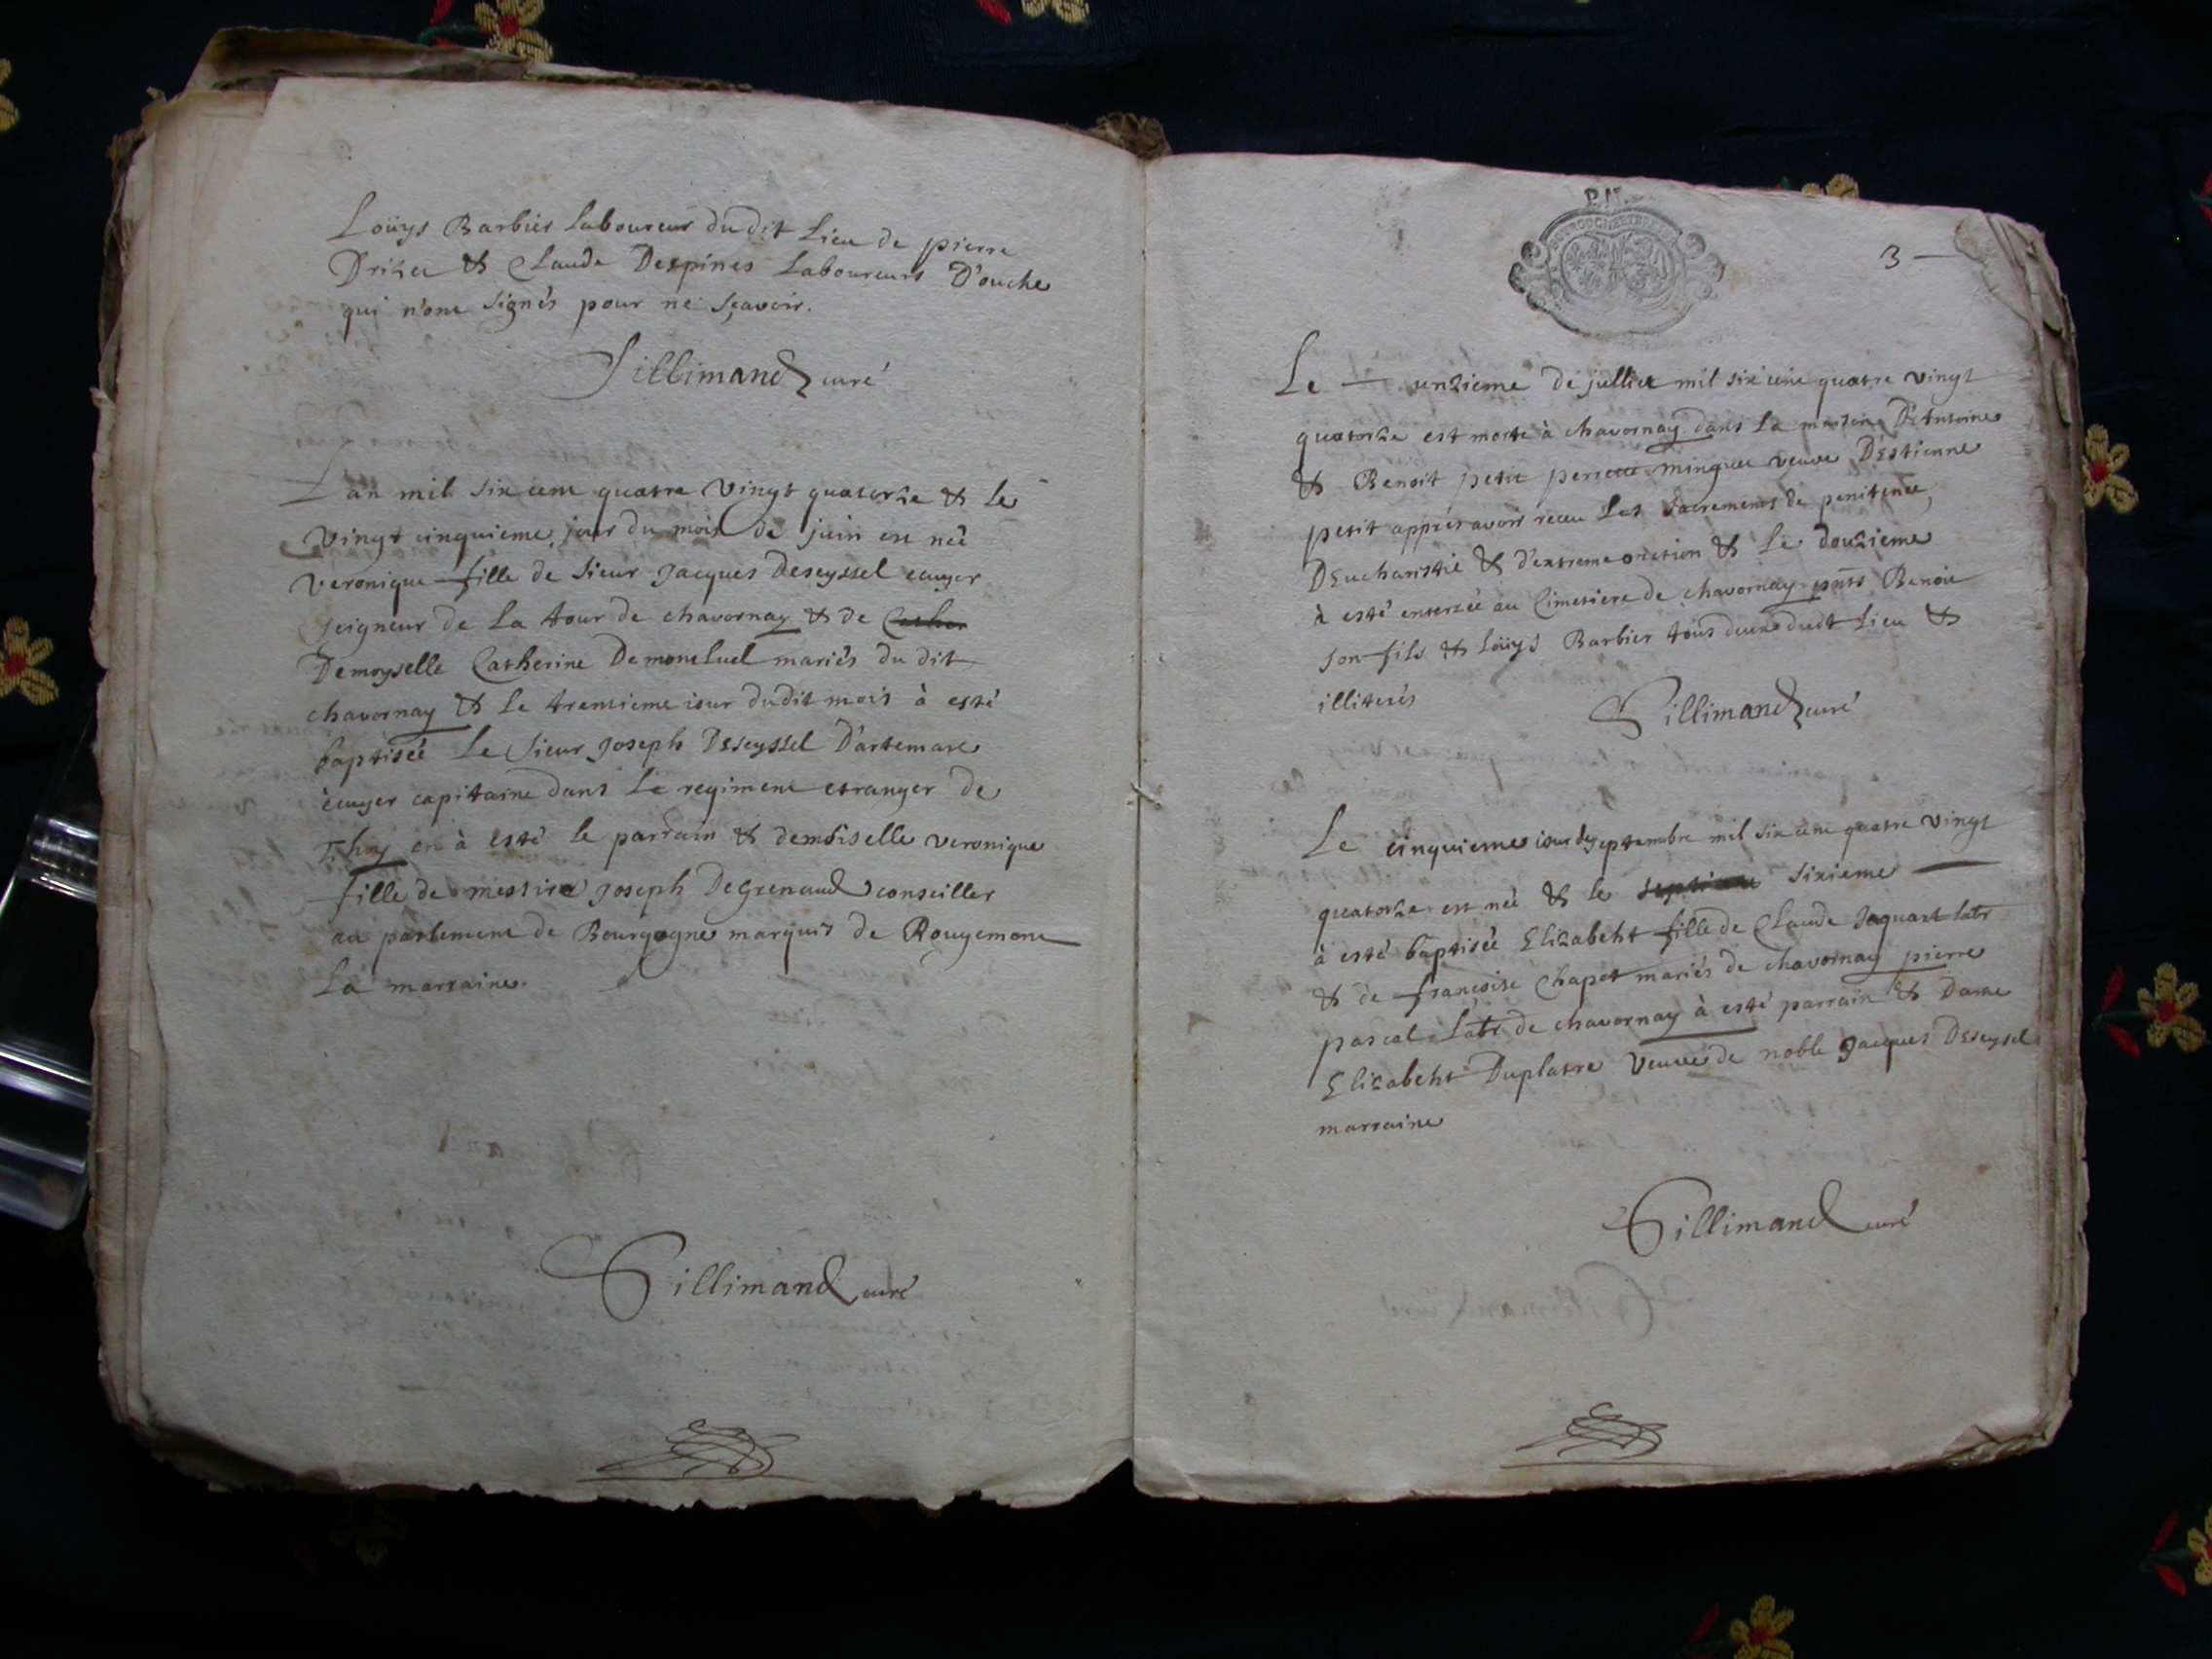 Loüys Barbier laboureur du dit lieu de pierre
Drihet & Claude Despines laboureurs D'ouche
qui n'ont signés pour ne sçavoir.
Sillimand curé
L'an mil six cent quatre vingt quatorze & le
vingt cinquieme jour du mois de juin est neê
veronique fille de sieur Jacques Deseyssel ecuyer
seigneur de la tour de chavornay & de
Demoyselle Catherine Demontluel mariés du dit
chavornay & le trentieme iour dudit mois à esté
baptiseé le sieur Joseph Deseyssel D'artemare
ècuyer capitaine dans le regiment etranger de
Thoy en à esté le parrain & demoiselle veronique
fille de messire Joseph De Grenaud conseiller
au parlement de Bourgogne marquis de Rougemont
la marraine.
Sillimand curé
3
Le unzieme de jullet mil six cent quatre vingt
quatorze est morte à chavornay dans la maison D'Antoine
& Benoit petit perrette minguet veuve D'Estienne
petit apprés avoir receu les sacrements de penitence,
D'Eucharistie & d'extreme onction & le douzieme
à esté enterreé au Cimetiere de chavornay pnts Benoit
son fils & loüys Barbier tous deux dudt lieu &
illiterés
Sillimand curé
Le cinquieme iour de septembre mil six cent quatre vingt
quatorze est neé & le sixieme
à esté baptiseé Elizabeht fille de Claude Jaquart labr
& de francoise Chapot mariés de chavornay pierre
pascal labr de chavornay à esté parrain & Dame
Elizabeht Duplatre veuve de noble Jacques Deseyssel
marraine
Sillimand curé